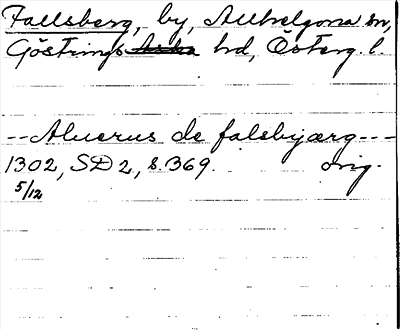 Fallsberg, by, Allhelgona sn,
Göstrings hd, Österg. l.
--Aluerus de falsbyærg---
1302, SD 2, s. 369. orig.
5/12